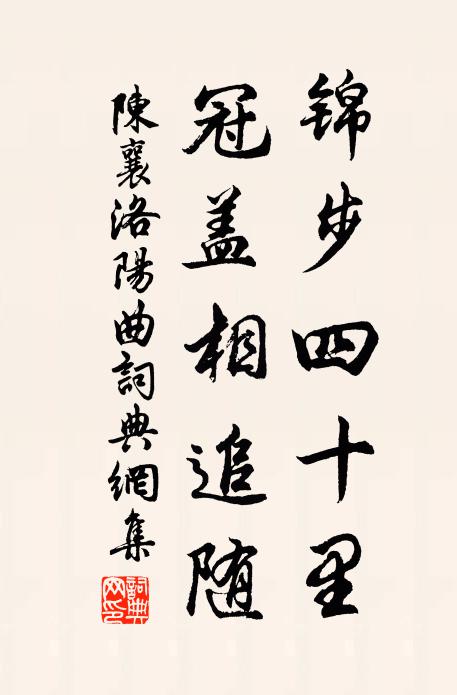 锦步四十里
冠盖相追随
陳襄洛陽曲詞典網集
詞典網印